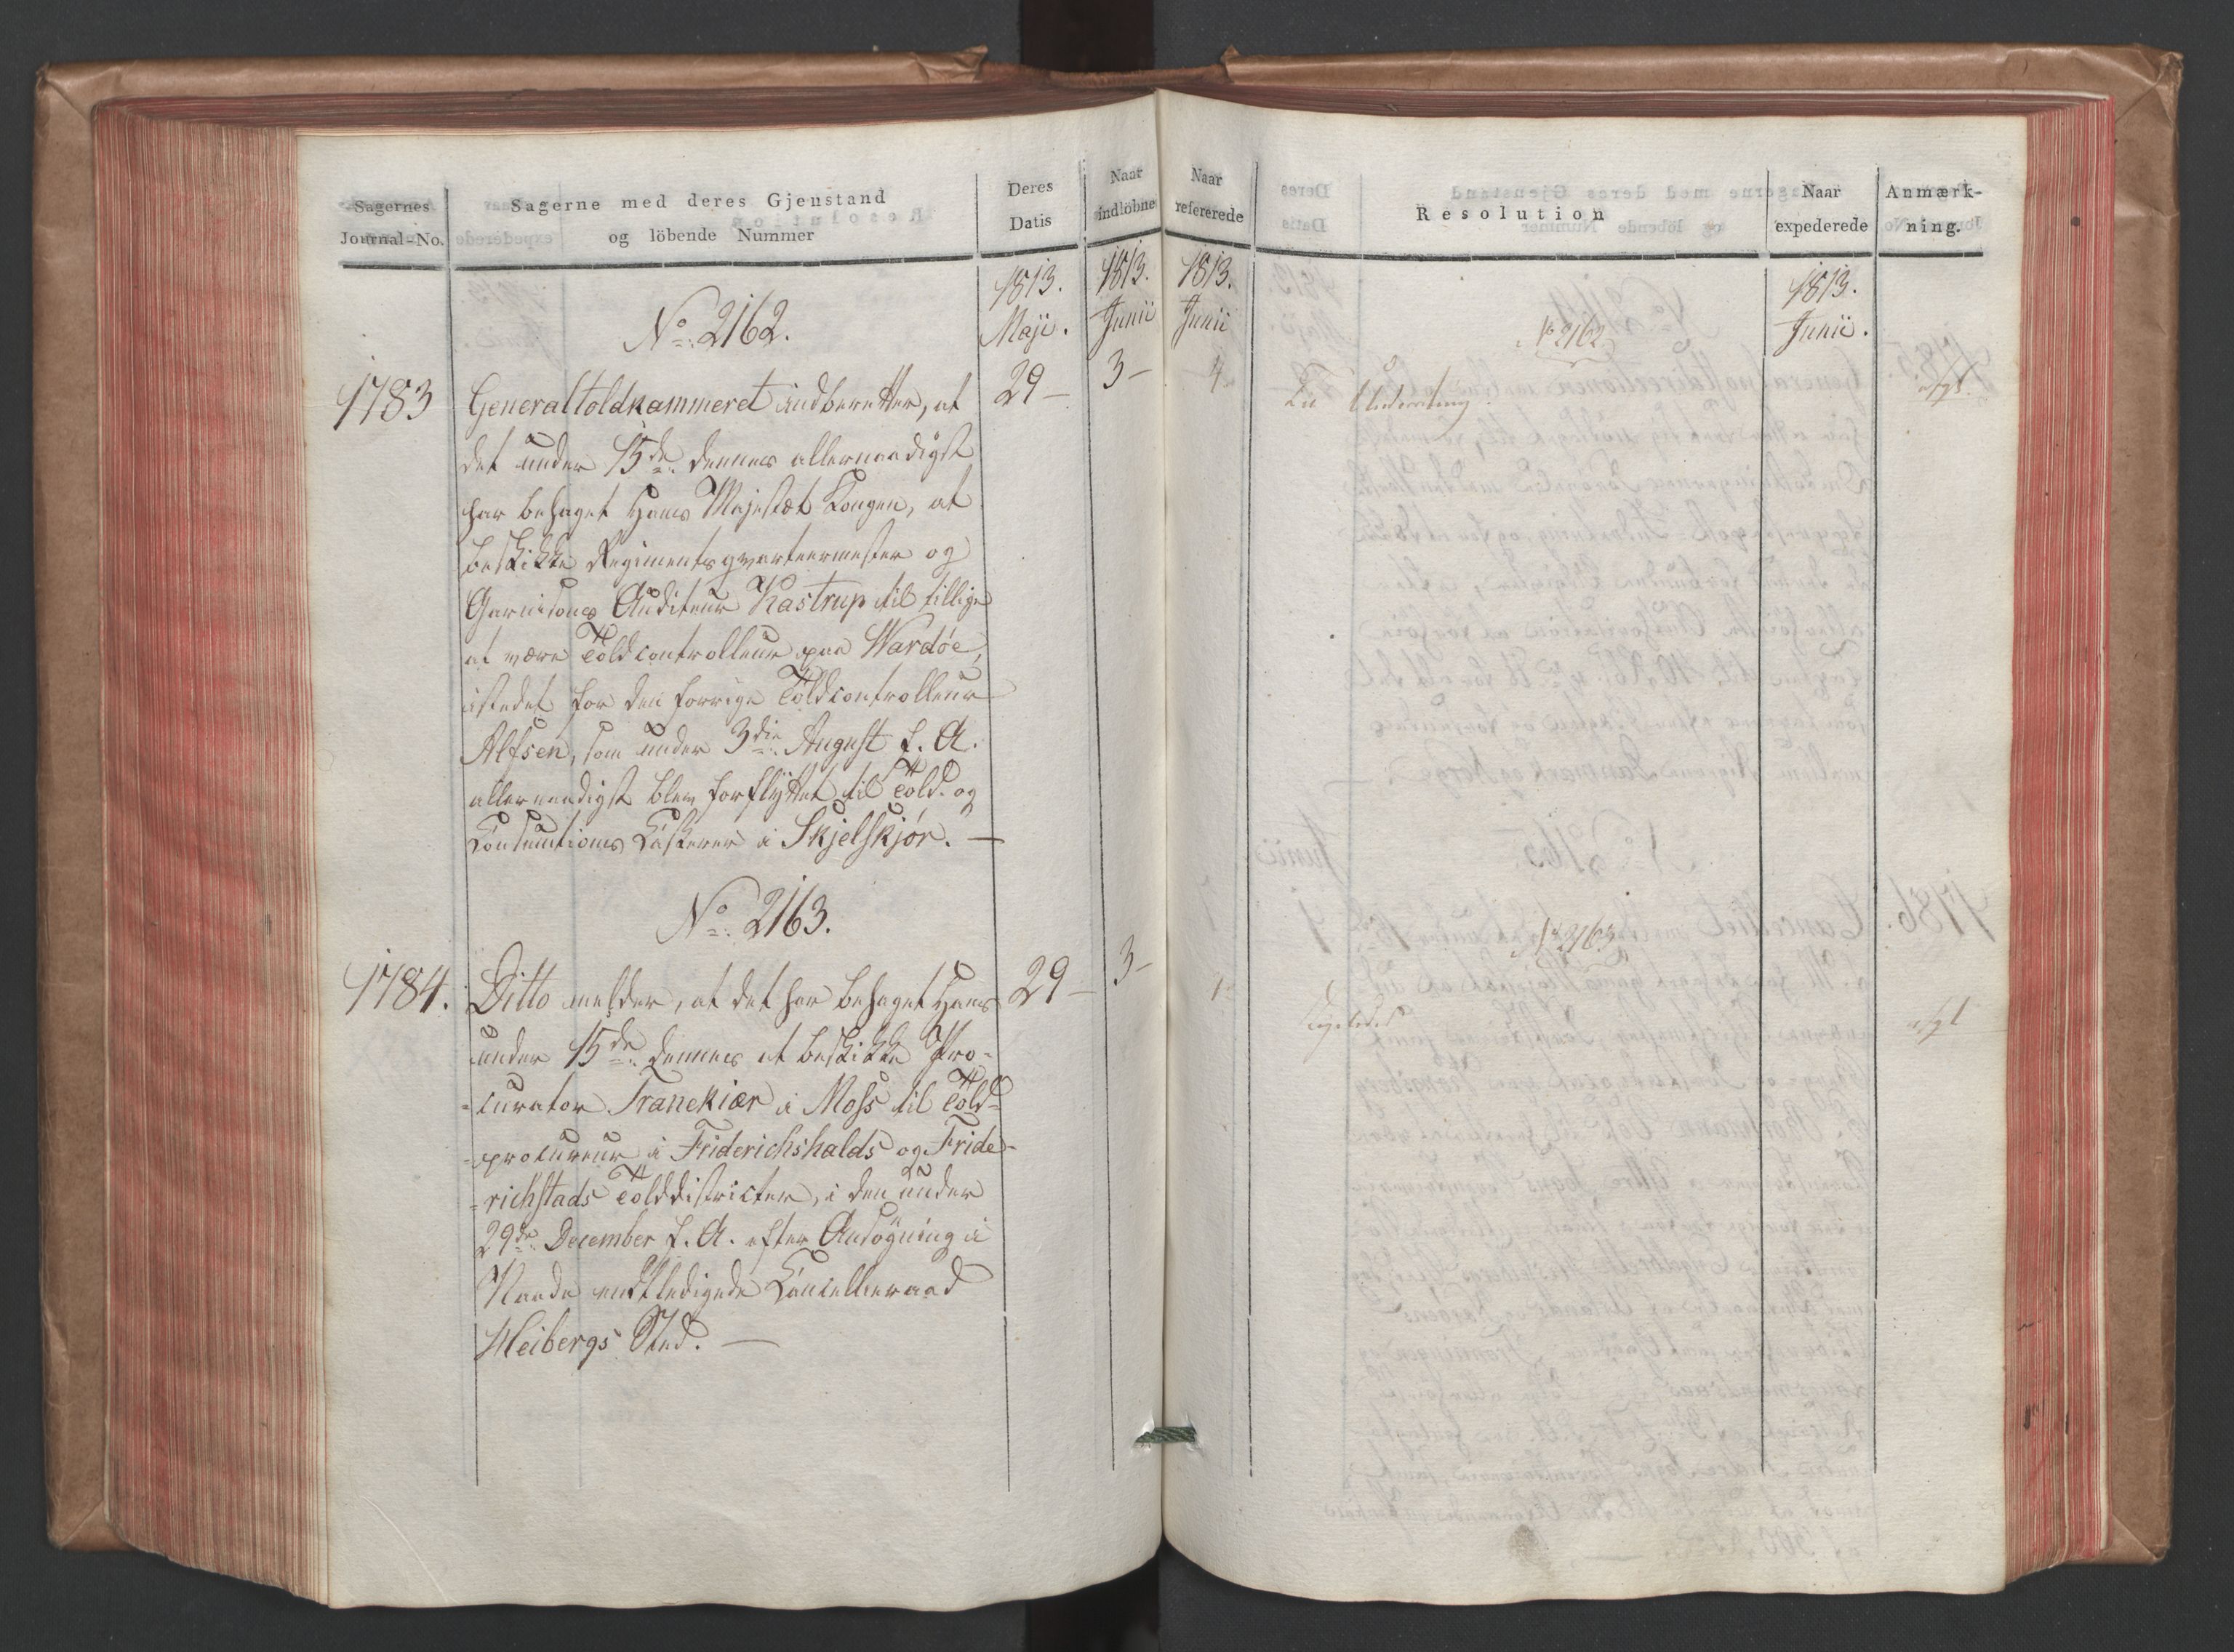 Sagernes
Journal-No.
Sagerne med deres Gjenstand
og löbende Nummer
Deres
Datis
Naar
indlöbne
1813.
Maji.
1813.
Junii
No. 2162.
1783 Generaltoldkammeret indberetter, at 29 — 3 —
det under 15de dennes allernaadigst
har behaget Hans Majestæt Kongen, at
beskikke Regimentsqvarteermester og
Garnisons Auditeur Kastrup til tillige
at være Toldcontrolleur paa Wardöe,
istedet for den forrige Toldcontrolleur
Alfsen, som under 3die August f. A.
allernaadigst blev forflyttet til Told- og
Consumtions Casserer i Skjelskjør. —
No. 2163.
1784. Ditto melder, at det har behaget Hans 29 — 3 —
under 15de dennes at beskikke Pro-
curator Tranekiær i Moss til Told-
procureur i Friderichshalds og Fride-
richstads Tolddistricter, i den under
29de December f. A. efter Ansögning i
Naade entledigede Cancelleraad
Heibergs Sted. —
Naar
refererede
Resolution
Naar
expederede
Anmærk-
ning.
1813.
Junii
1813.
Junii.
No 2162
4
Til Underretning.
No 2163
Ligeledes